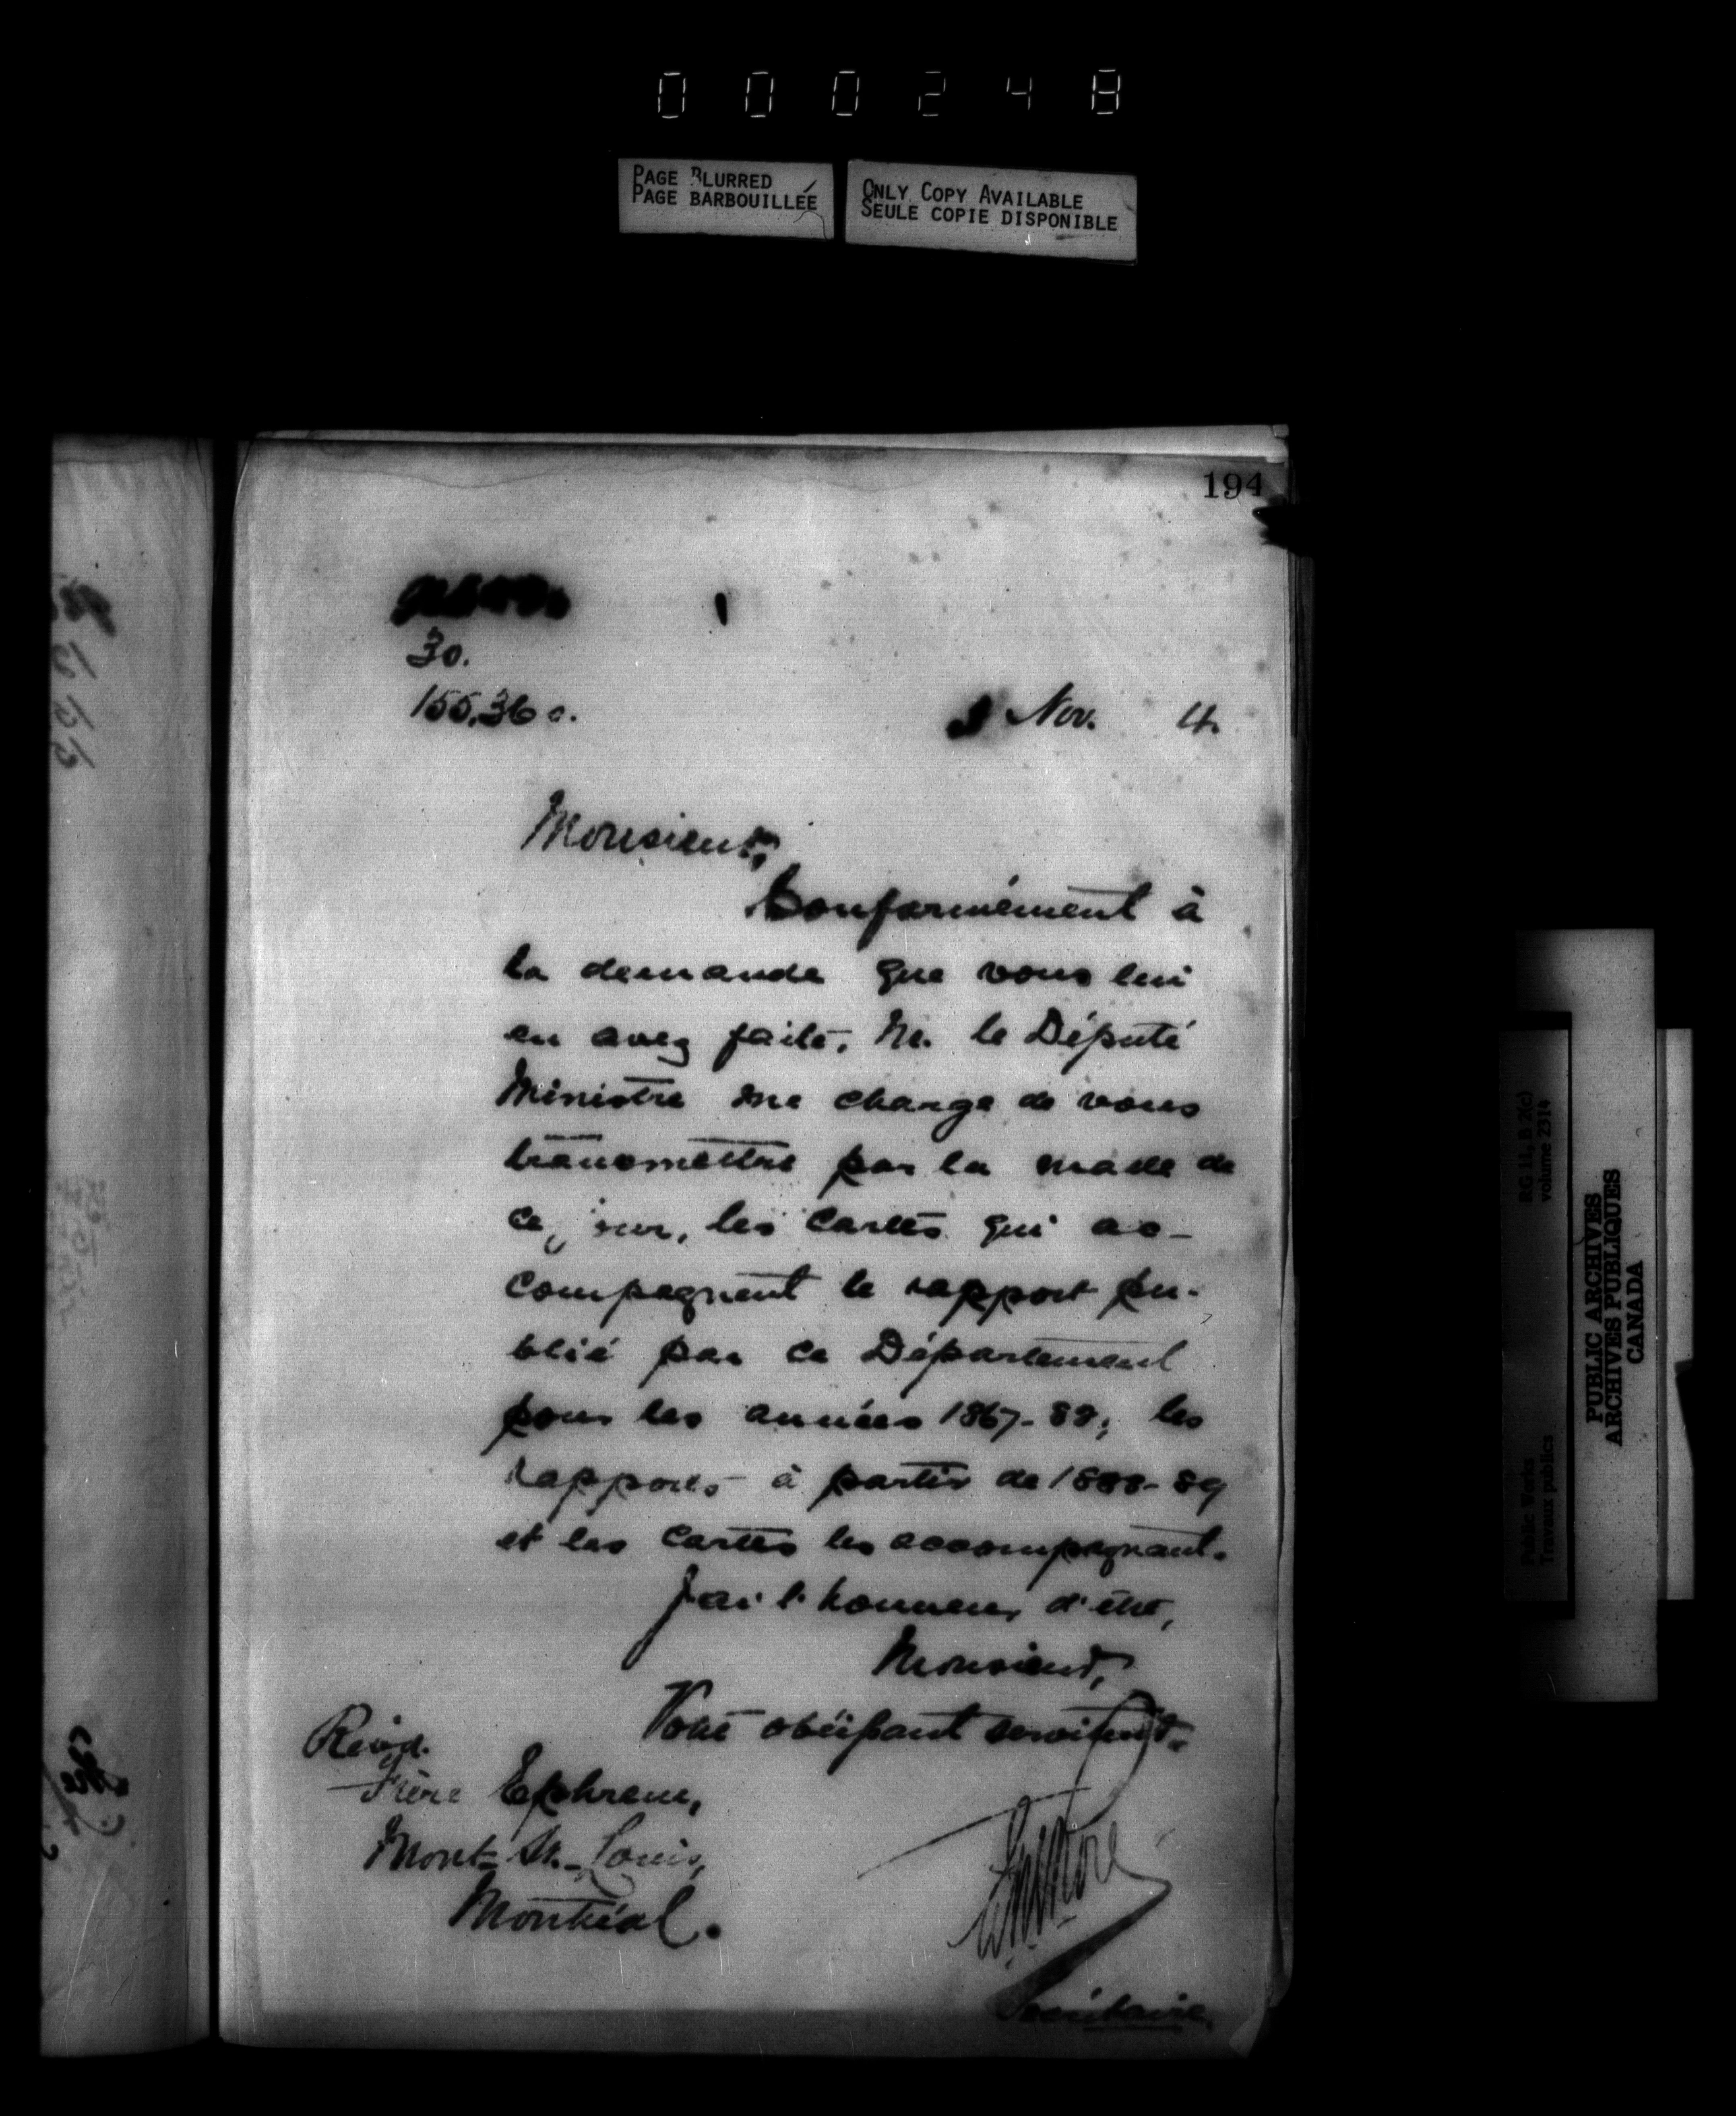 000248
PAGE BLURRED
PAGE BARBOUILLÉE
ONLY COPY AVAILABLE
SEULE COPIE DISPONIBLE
194
30.
155,360.
Nov. 4.
Monsieur,
Conformément à
la demande que vous lui
en avez faite, M. le Député
Ministre me charge de vous
transmettre par la malle de
ce jour, les cartes qui ac-
compagnent le rapport pu-
blié par ce Département
pour les années 1867-82; les
rapports à partir de 1888-89
et les cartes les accompagnant.
J'ai l'honneur d'être,
Monsieur,
Votre obéissant serviteur.
Révd.
Frère Ephrem,
Mont-St.-Louis,
Montréal.
Secrétaire.
RG 11, B 2(c)
volume 2314
Public Works
Travaux publics
PUBLIC ARCHIVES
ARCHIVES PUBLIQUES
CANADA